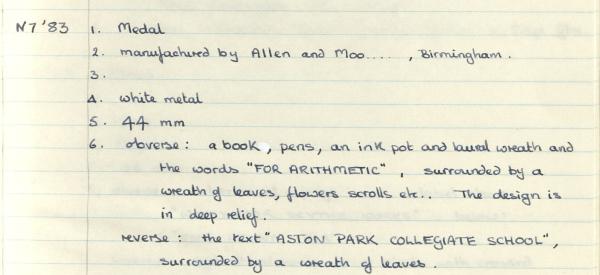 N7 '83 1. Medal
2. manufactured by Allen and Moo...., Birmingham.
3.
4. white metal
5. 44 mm
6. obverse: a book, pens, an ink pot and laural wreath and
the words "FOR ARITHMETIC", surrounded by a
wreath of leaves, flowers scrolls etc.. The design is
in deep relief.
reverse: the text "ASTON PARK COLLEGIATE SCHOOL",
surrounded by a wreath of leaves.